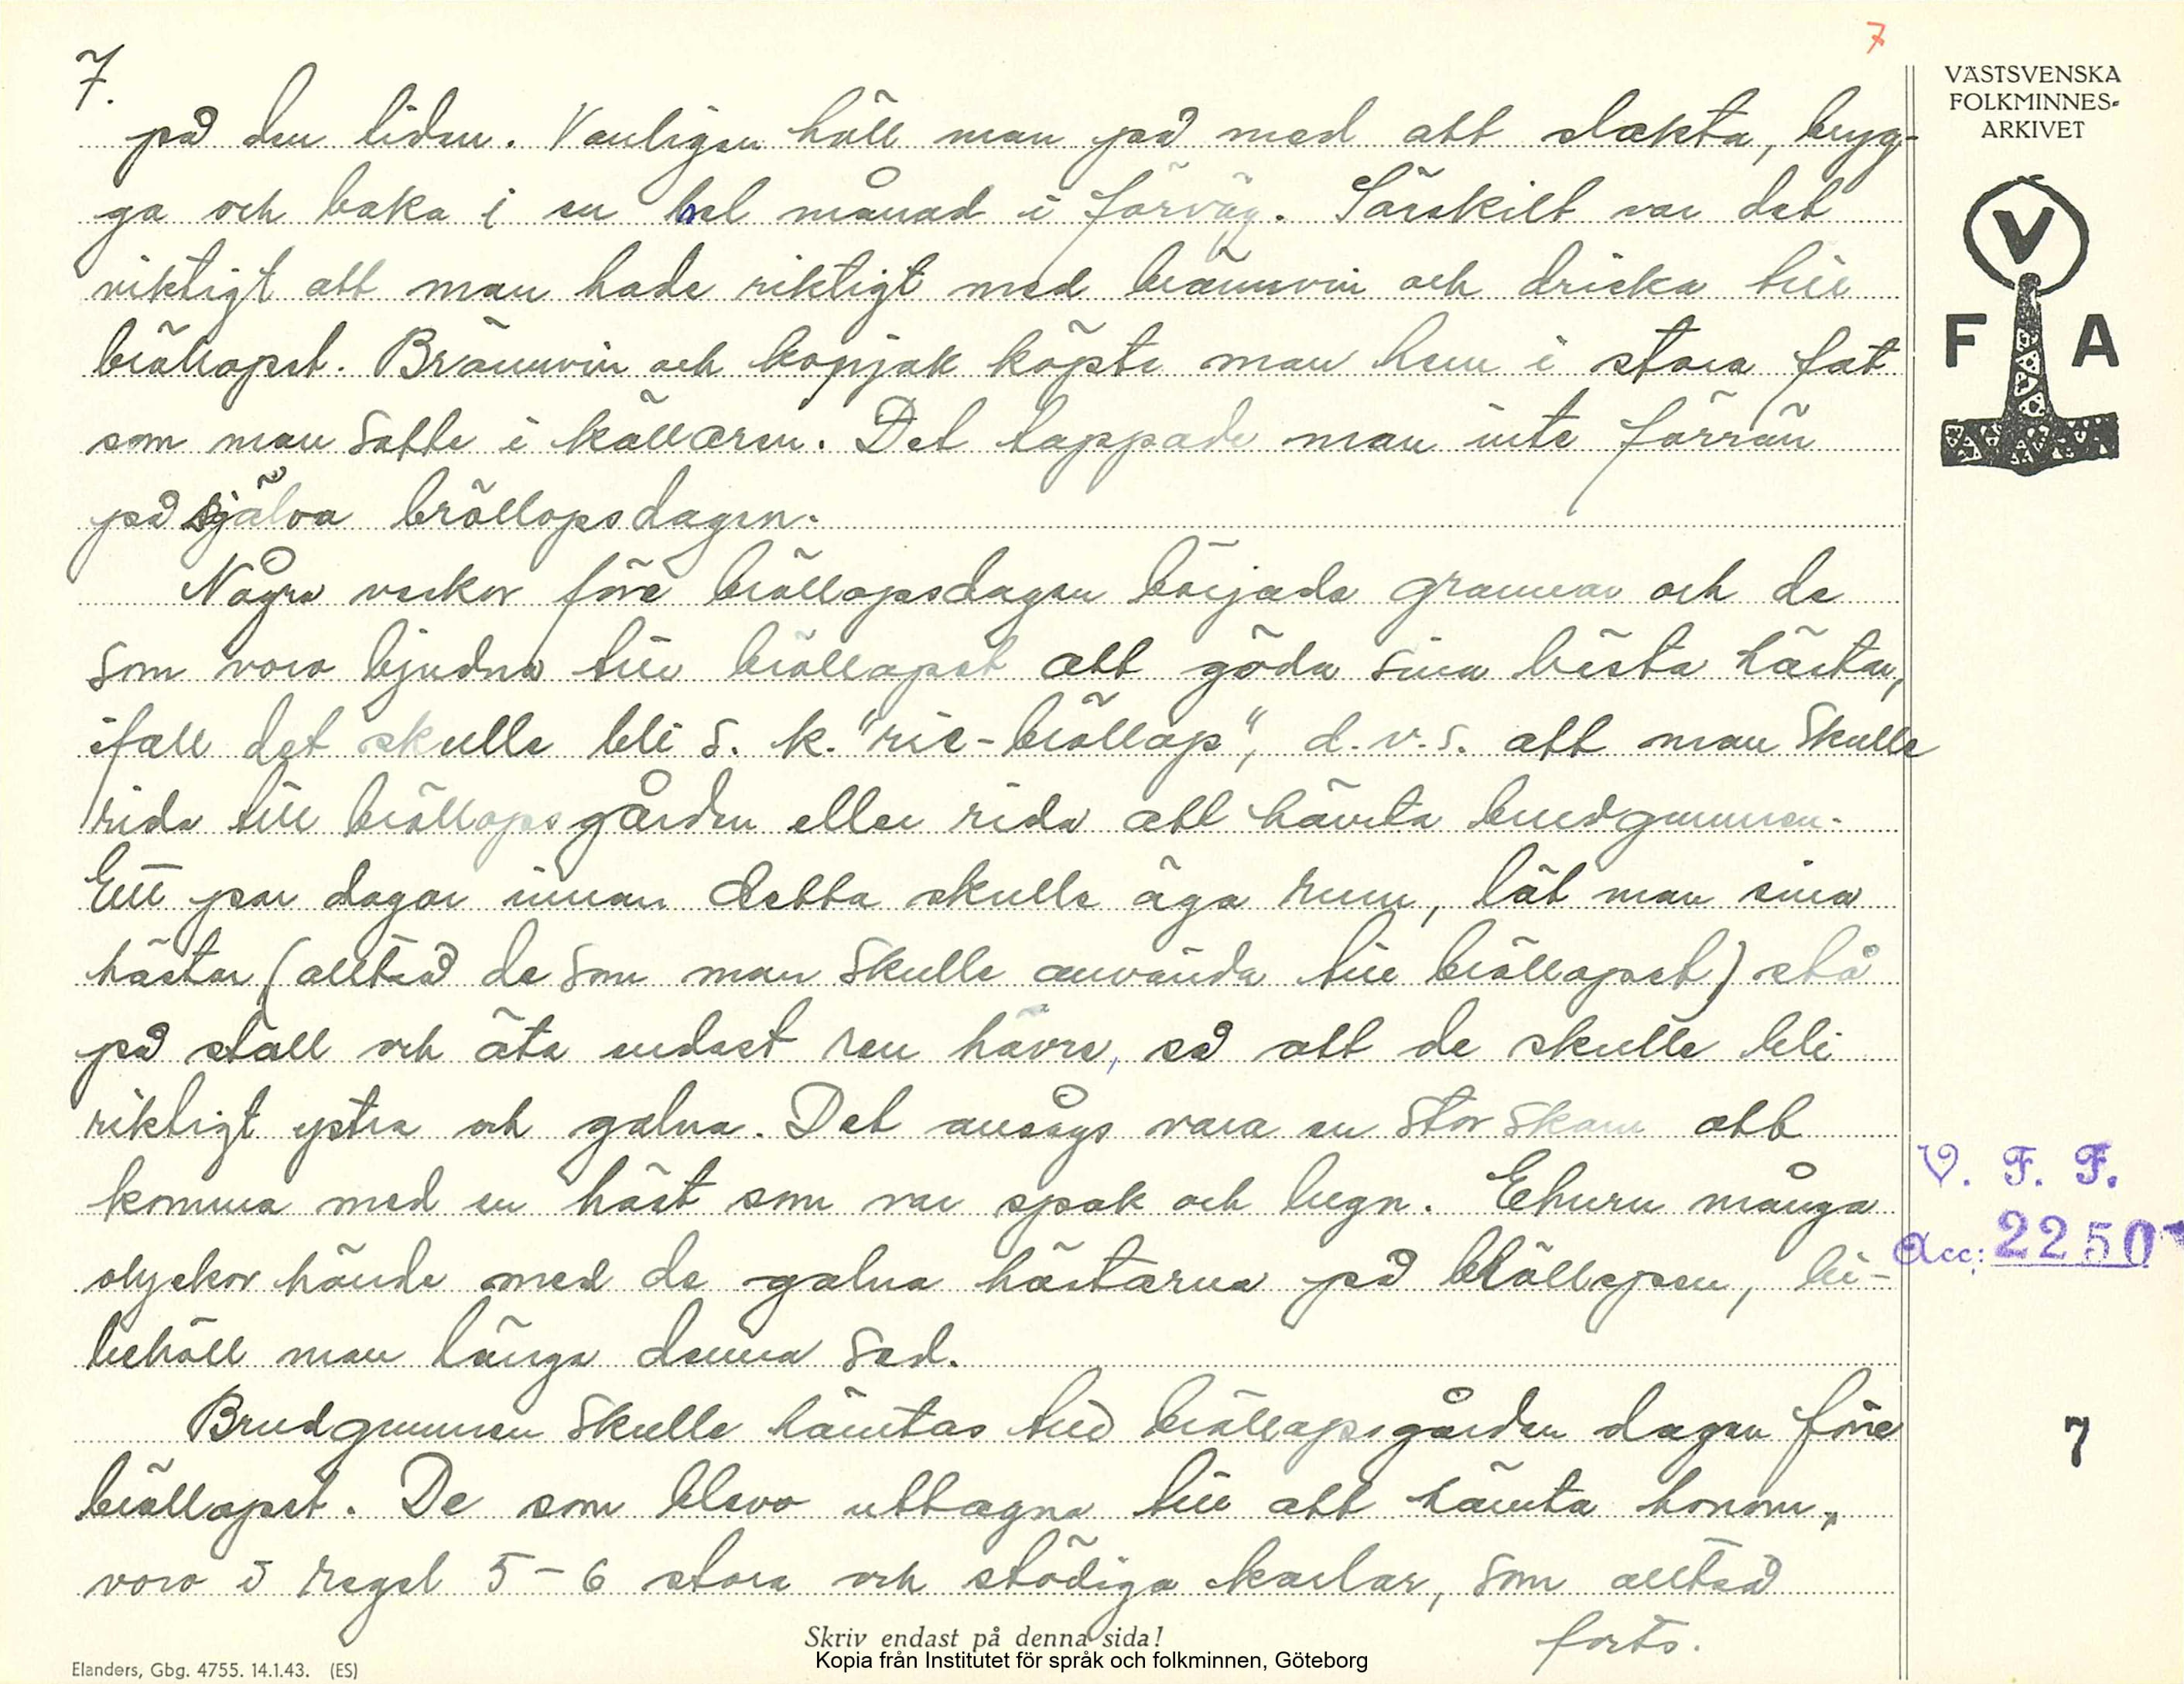 7
7.
VÄSTSVENSKA
FOLKMINNES-
ARKIVET
V
F A
på den tiden. Vanligen höll man på med att slakta, bryg-
ga och baka i en hel månad i förväg. Särskilt var det
viktigt att man hade riktigt med brännvin och dricka till
bröllopet. Brännvin och konjak köpte man hem i stora fat
som man satte i källaren. Det tappade man inte förrän
på själva bröllopsdagen.
Några veckor före bröllopsdagen började grannar och de
som voro bjudna till bröllopet att göda sina bästa hästar,
ifall det skulle bli s. k. "rie-bröllop", d.v.s. att man skulle
rida till bröllopsgården eller rida att hämta brudgummen.
Ett par dagar innan detta skulle äga rum, lät man sina
hästar (alltså de som man skulle använda till bröllopet) stå
på stall och äta endast ren havre, så att de skulle bli
riktigt ystra och galna. Det ansågs vara en stor skam att
komma med en häst som var spak och lugn. Ehuru många
olyckor hände med de galna hästarna på bröllopen, bi-
behöll man länge denna sed.
Brudgummen skulle hämtas till bröllopsgården dagen före
bröllopet. De som blevo uttagna till att hämta honom,
voro i regel 5-6 stora och stödiga karlar, som alltså
forts.
V. F. F.
Acc: 2250
7
Skriv endast på denna sida!
Kopia från Institutet för språk och folkminnen, Göteborg
Elanders, Gbg. 4755. 14.1.43. (ES)